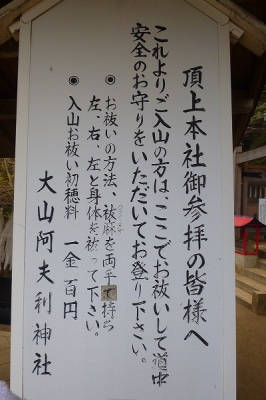 頂上本社御参拝の皆様へ
これよりご入山の方は、ここでお祓いして道中
安全のお守りをいただいてお登り下さい。
◉ お祓いの方法、祓麻を両手で持ち
左、右、左と身体を祓って下さい。
◉ 入山お祓い初穂料 一金百円
大山阿夫利神社